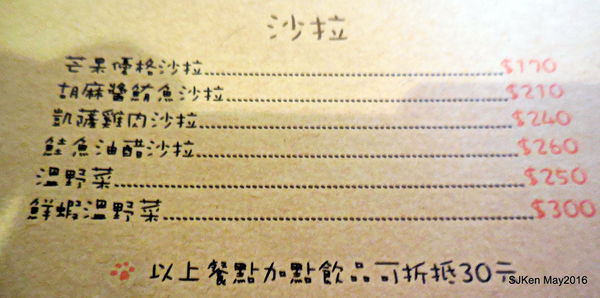 沙拉
芒果優格沙拉 $170
胡麻醬鮪魚沙拉 $210
凱薩雞肉沙拉 $240
鮭魚油醋沙拉 $260
溫野菜 $250
鮮蝦溫野菜 $300
以上餐點加點飲品可折抵30元
SJKen May2016